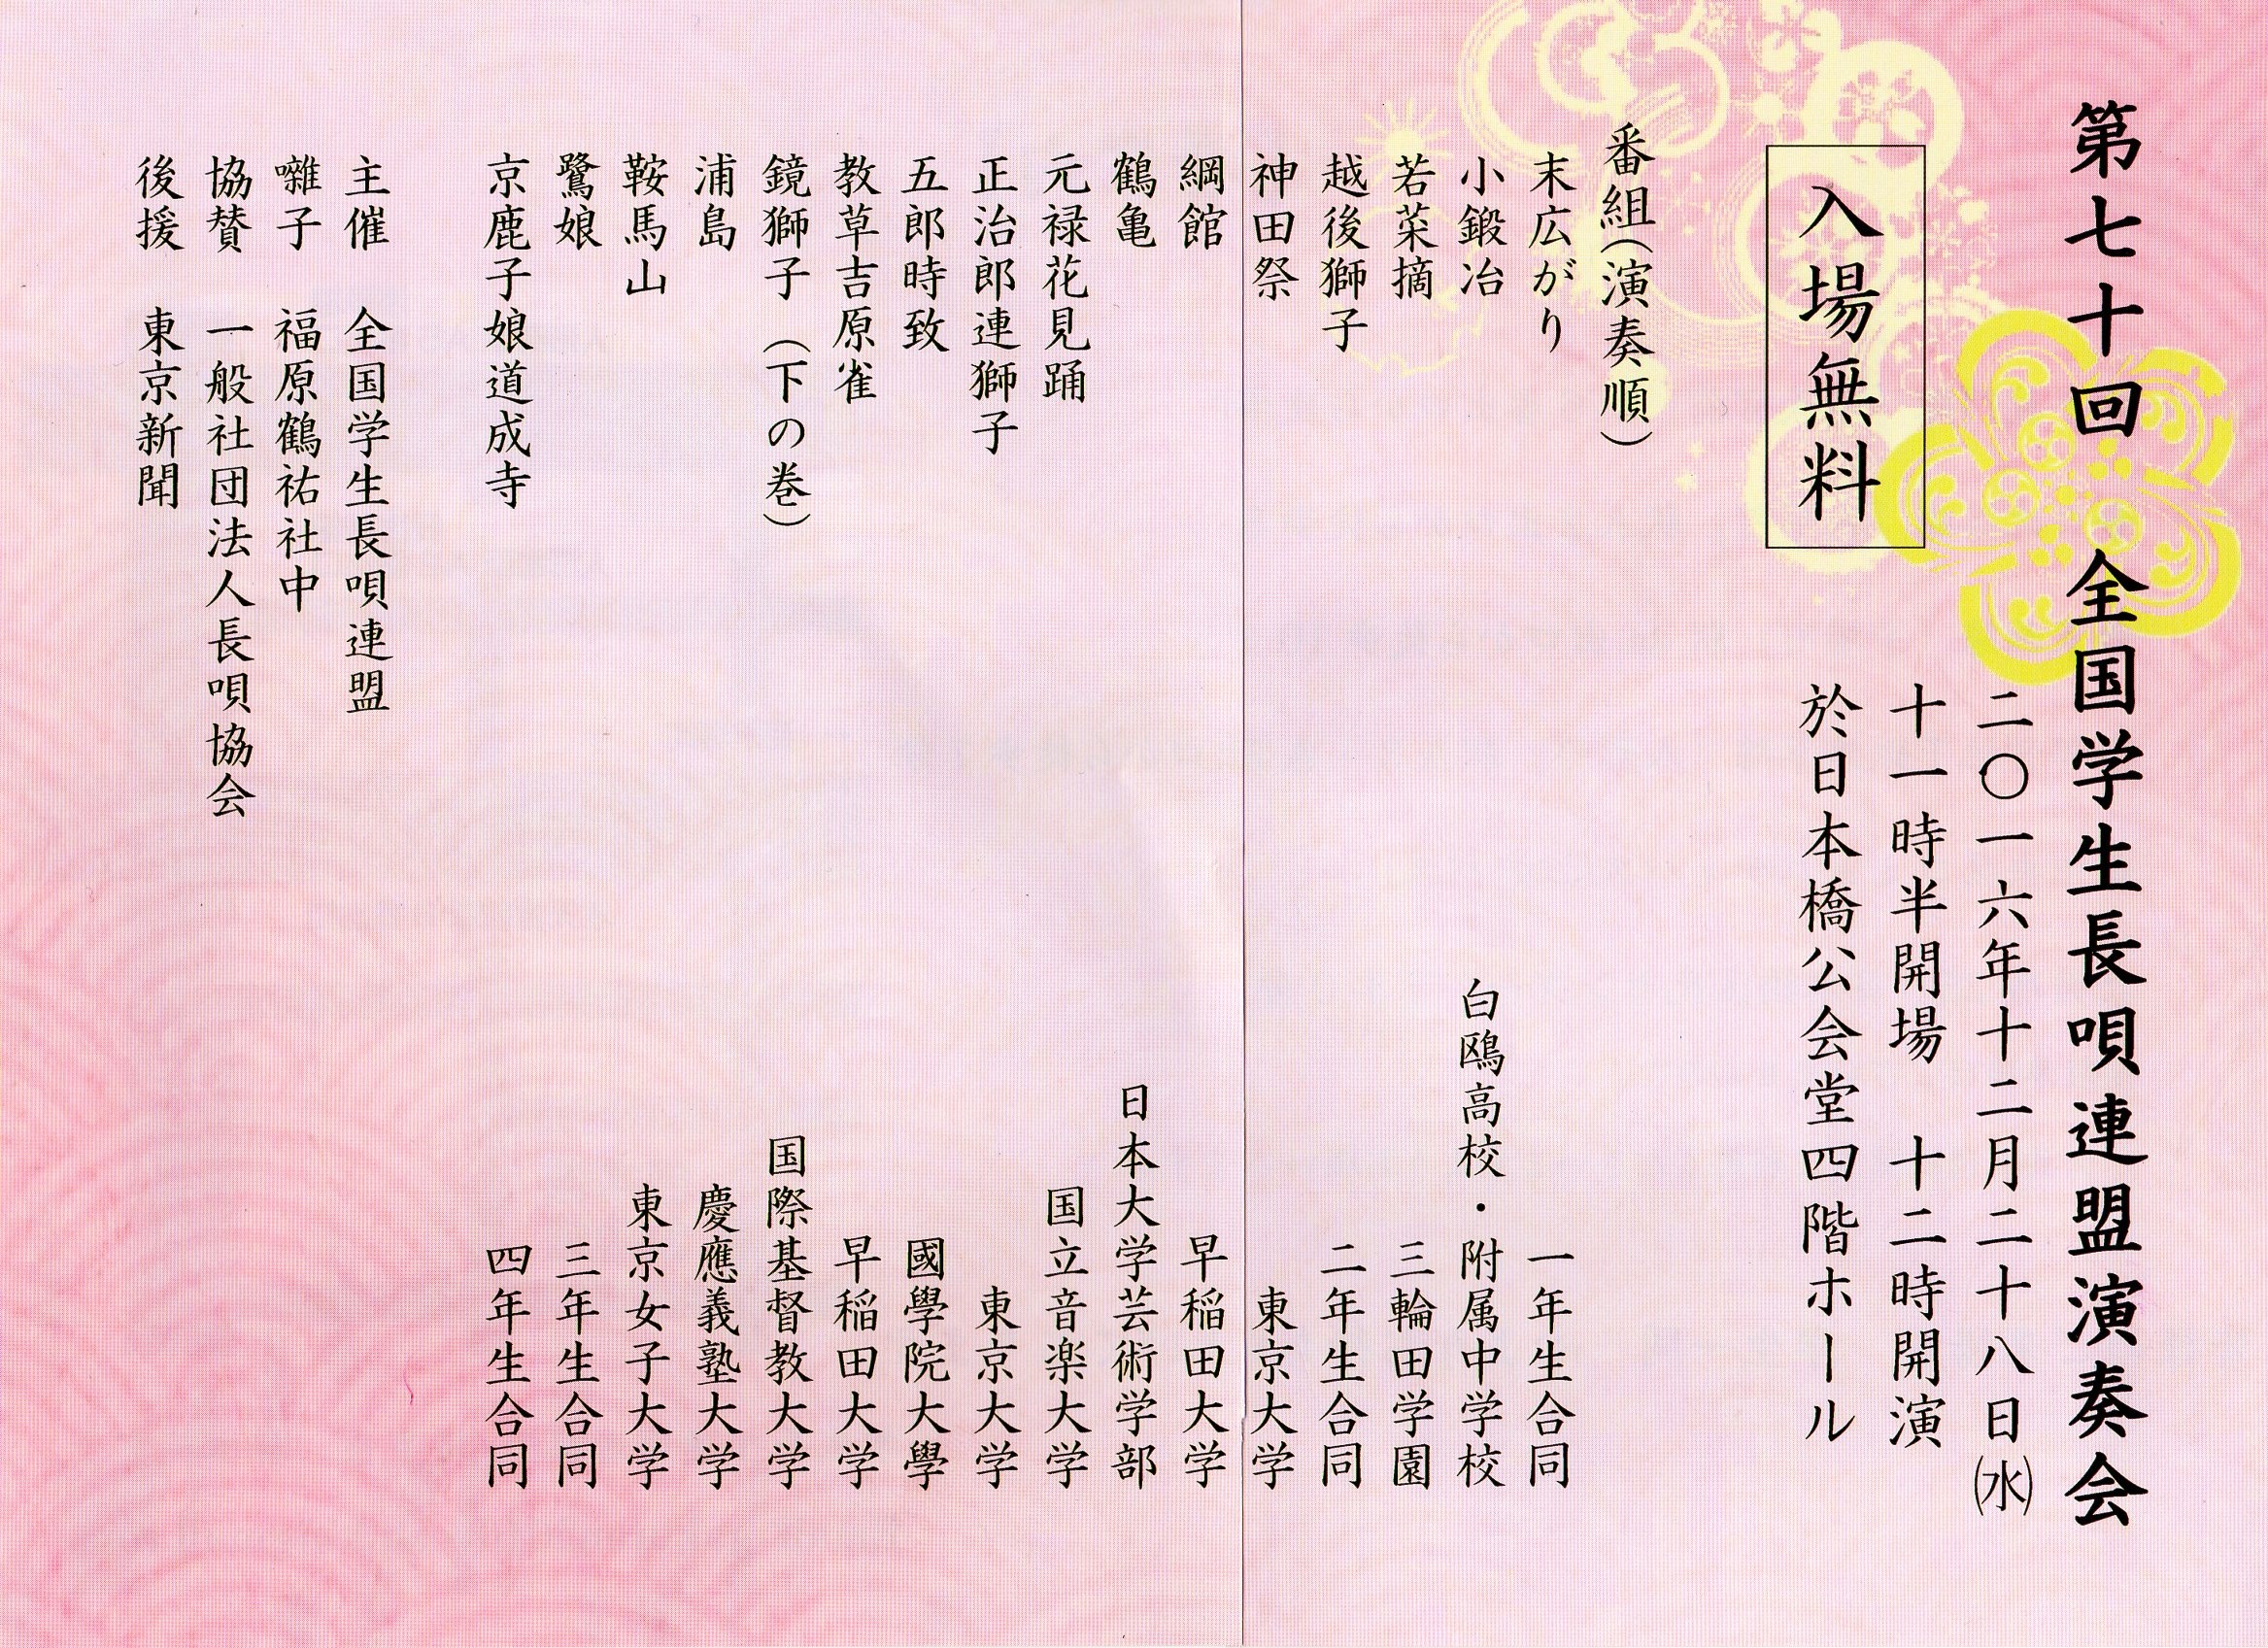 第七十回　全国学生長唄連盟演奏会
二〇一六年十二月二十八日(水)
十一時半開場　十二時開演
於日本橋公会堂四階ホール
入場無料
番組(演奏順)
末広がり　一年生合同
小鍛冶　白鷗高校・附属中学校
若菜摘　三輪田学園
越後獅子　二年生合同
神田祭　東京大学
綱館　早稲田大学
鶴亀　日本大学芸術学部
元禄花見踊　国立音楽大学
正治郎連獅子　東京大学
五郎時致　國學院大學
教草吉原雀　早稲田大学
鏡獅子（下の巻）　国際基督教大学
浦島　慶應義塾大学
鞍馬山　東京女子大学
鷺娘　三年生合同
京鹿子娘道成寺　四年生合同
主催　全国学生長唄連盟
囃子　福原鶴祐社中
協賛　一般社団法人長唄協会
後援　東京新聞